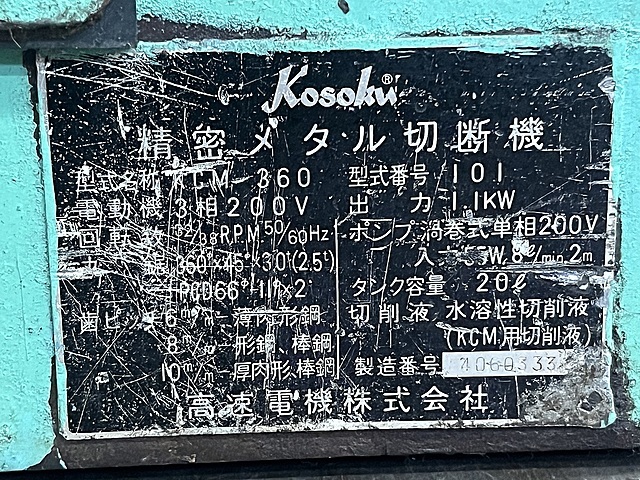 Kosoku®
精密メタル切断機
型式名称 KCM-360
型式番号 101
電動機 3相200V
出力 1.1KW
回転数 32/38RPM 50/60Hz
ポンプ 渦巻式単相200V
W, 8ℓ/min, 2m
360×45×3.0t(2.5t)
PCD66 11 ×2
タンク容量 20ℓ
歯ピッチ 6m/m 薄肉形鋼
切削液 水溶性切削液
8m/m 形鋼、棒鋼
(KCM用切削液)
10m/m 厚肉形、棒鋼
製造番号
高速電機株式会社